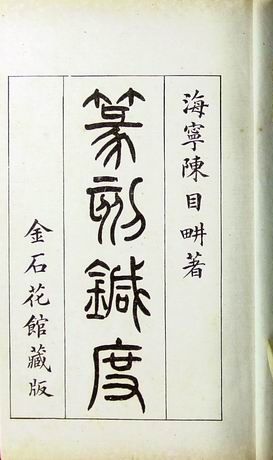 海寧陳目畊著
篆刻鍼度
金石花館藏版